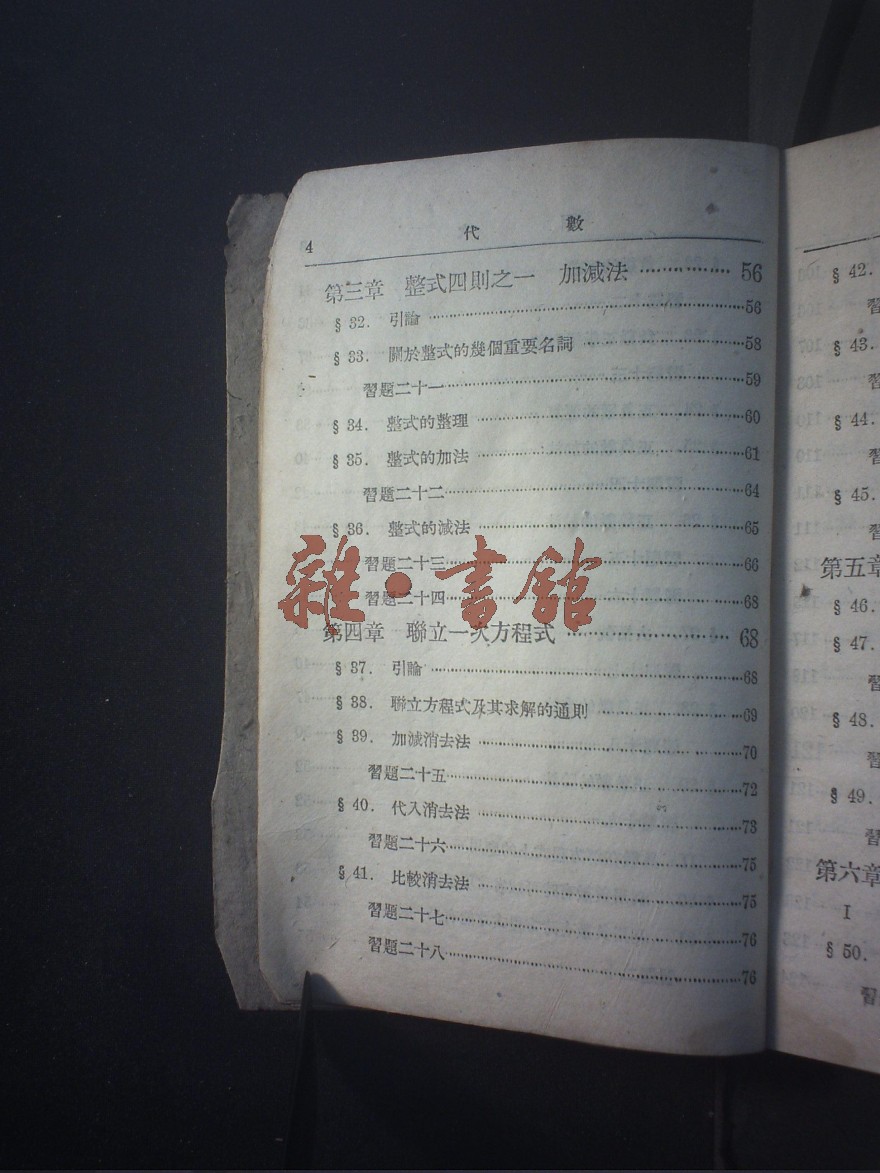 4 代 數
第三章 整式四則之一 加減法 ················ 56
§ 32. 引論 ················ 56
§ 33. 關於整式的幾個重要名詞 ················ 58
習題二十一 ················ 59
§ 34. 整式的整理 ················ 60
§ 35. 整式的加法 ················ 61
習題二十二 ················ 64
§ 36. 整式的減法 ················ 65
習題二十三 ················ 66
習題二十四 ················ 68
雜·書館
第四章 聯立一次方程式 ················ 68
§ 37. 引論 ················ 68
§ 38. 聯立方程式及其求解的通則 ················ 69
§ 39. 加減消去法 ················ 70
習題二十五 ················ 72
§ 40. 代入消去法 ················ 73
習題二十六 ················ 75
§ 41. 比較消去法 ················ 75
習題二十七 ················ 76
習題二十八 ················ 76
§ 42.
習
§ 43.
習
§ 44.
習
§ 45.
習
第五章
§ 46.
§ 47.
習
§ 48.
習
§ 49.
習
第六章
I
§ 50.
習